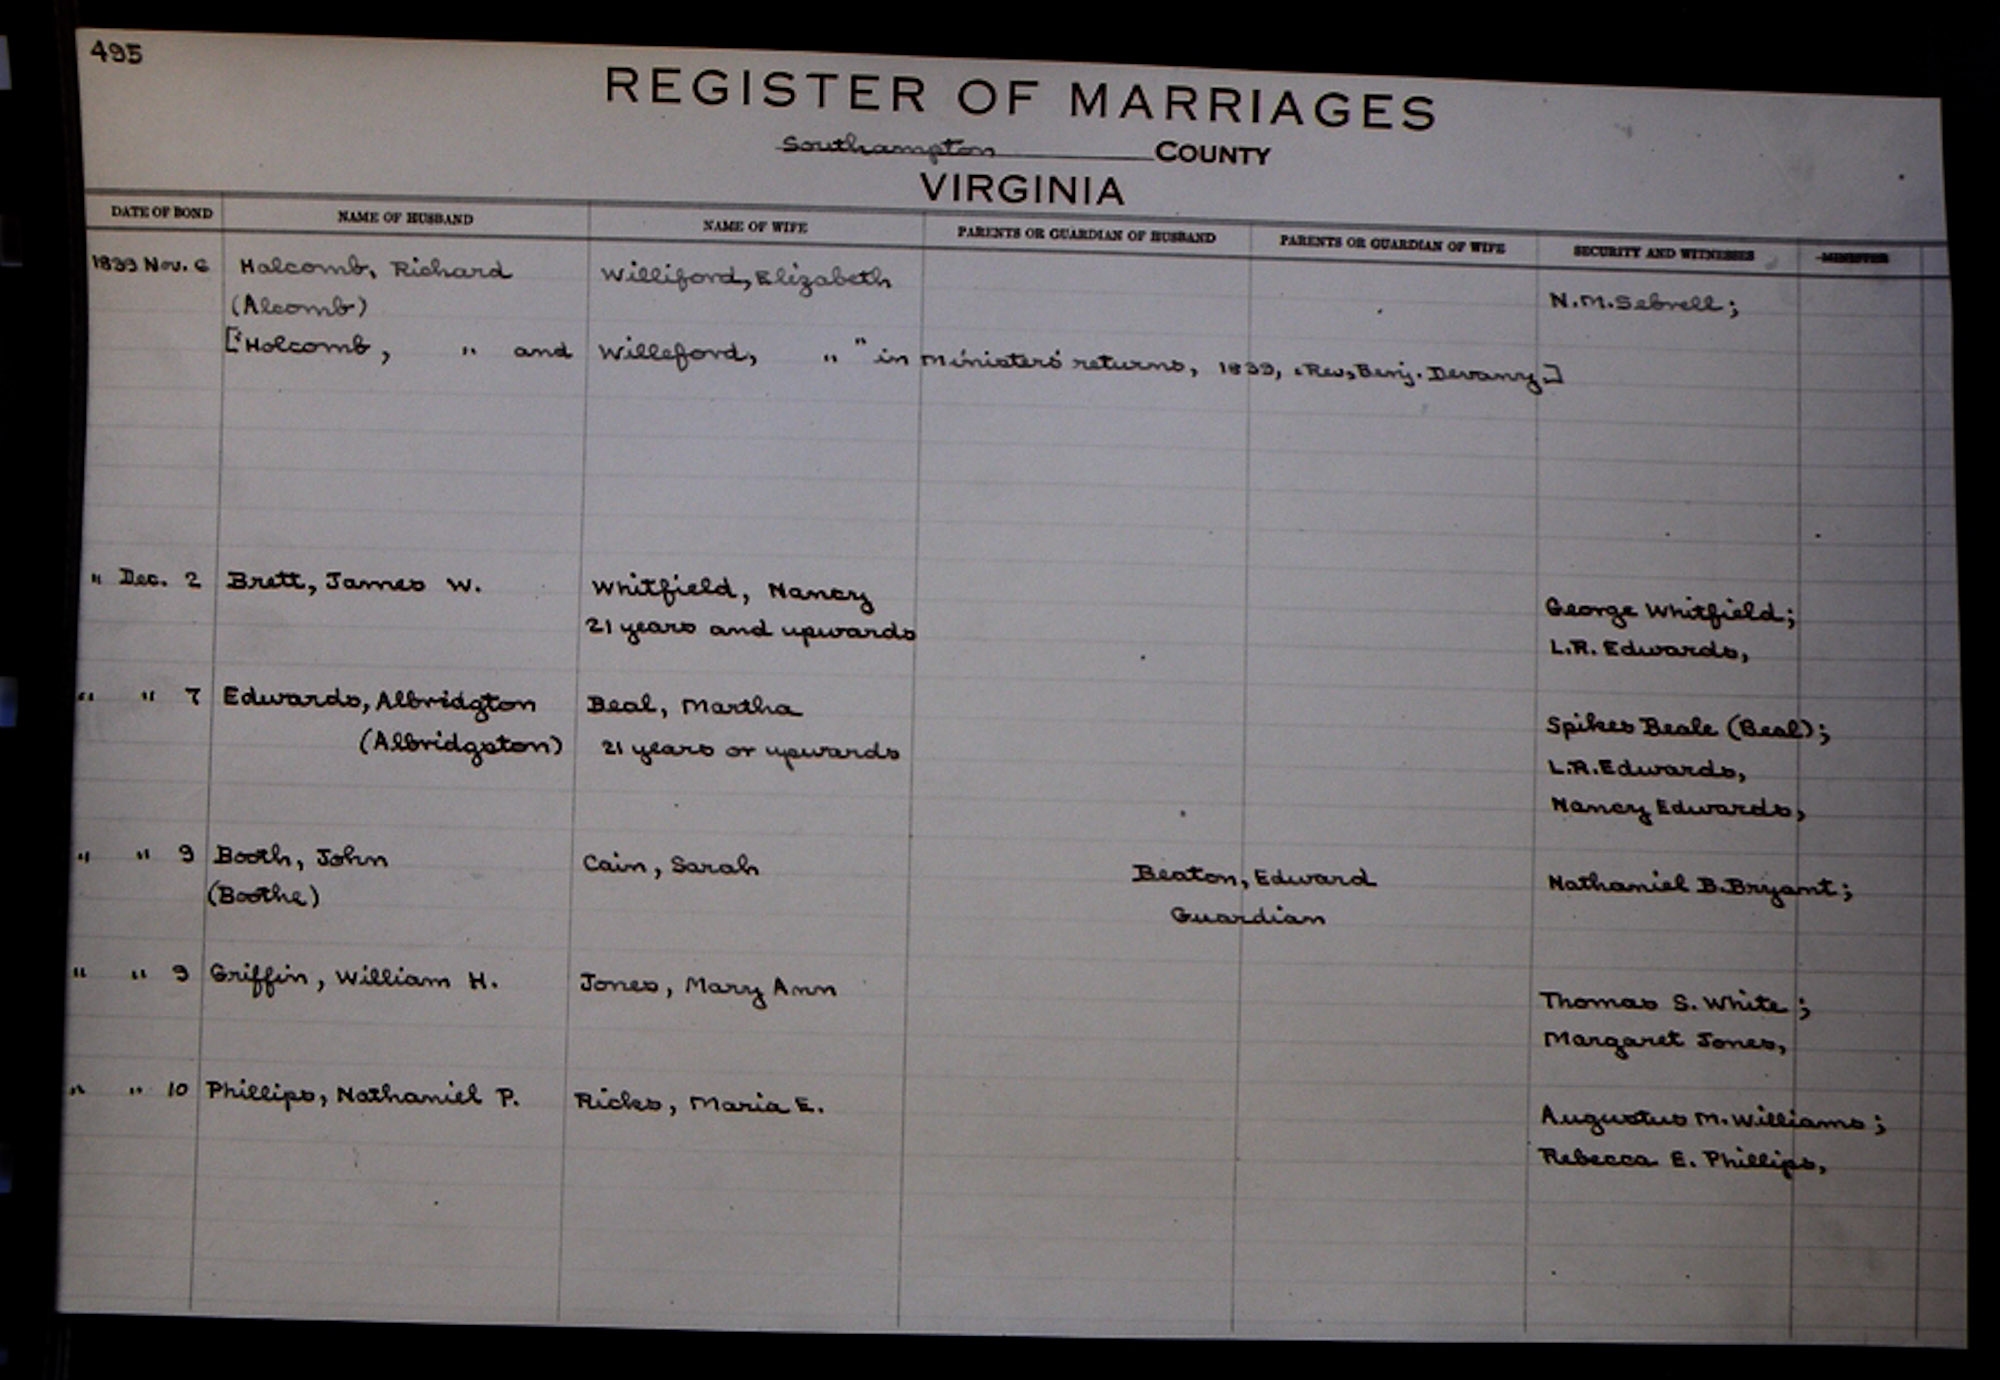 495
REGISTER OF MARRIAGES
Southampton COUNTY
VIRGINIA
DATE OF BOND NAME OF HUSBAND NAME OF WIFE PARENTS OR GUARDIAN OF HUSBAND PARENTS OR GUARDIAN OF WIFE SECURITY AND WITNESSES MINISTER
1839 Nov. 6 Halcomb, Richard Williford, Elizabeth
(Alcomb) N.M. Sebrell;
["Holcomb, " and Willeford, " " in Ministers' returns, 1839, (Rev, Benj. Devany]
" Dec. 2 Brett, James W. Whitfield, Nancy George Whitfield;
21 years and upwards L.R. Edwards,
" " 7 Edwards, Albridgton Beal, Martha Spikes Beale (Beal);
(Albridgston) 21 years or upwards L.R. Edwards,
Nancy Edwards,
" " 9 Booth, John Cain, Sarah Beaton, Edward Nathaniel B. Bryant;
(Boothe) Guardian
" " 9 Griffin, William H. Jones, Mary Ann Thomas S. White;
Margaret Jones,
" " 10 Phillips, Nathaniel P. Ricks, Maria E. Augustus M. Williams;
Rebecca E. Phillips,